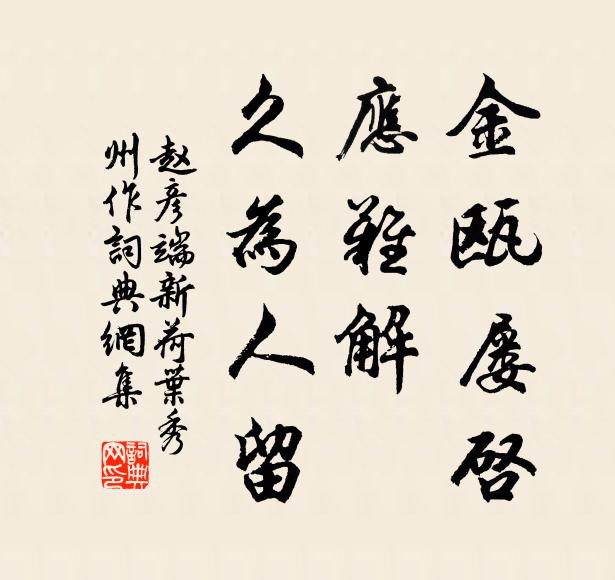 金甌屡啓
應難解
久為人留
赵彦端新荷葉秀
州作詞典網集
詞典
网印